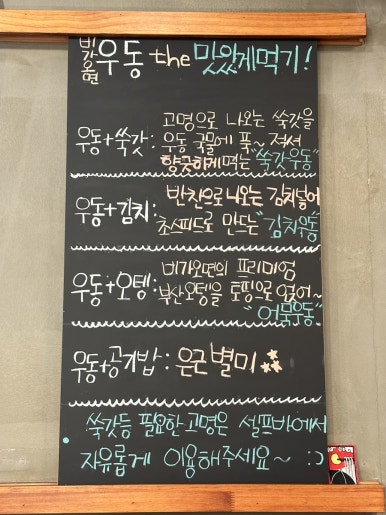 비가오면 우동 the 맛있게먹기!
고명으로 나오는 쑥갓을
우동+쑥갓: 우동 국물에 푹~ 젹셔
향긋하게먹는 "쑥갓우동"
반찬으로 나오는 김치넣어
우동+김치: 초스피드로 만드는 "김치우동"
비가오면의 프리미엄
우동+오뎅: 부산오뎅을 토핑으로 얹어~
"어묵우동"
우동+공기밥: 은근 별미
쑥갓등 필요한 고명은 셀프바에서
자유롭게 이용해주세요~ :)